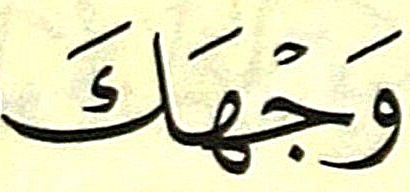 وَجْهَكَ